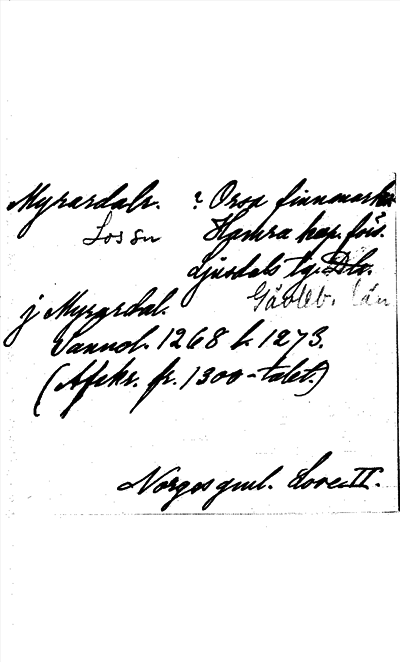 Myrardalr. ? Orsa finnmarker
Los sn Hamra kap. förs.
Ljusdals tg. Dlr.
Gävleb. län
j Myrardal.
vannol. 1268 l. 1273.
(Afskr. fr. 1300-talet.)
Norges gml. Love II.